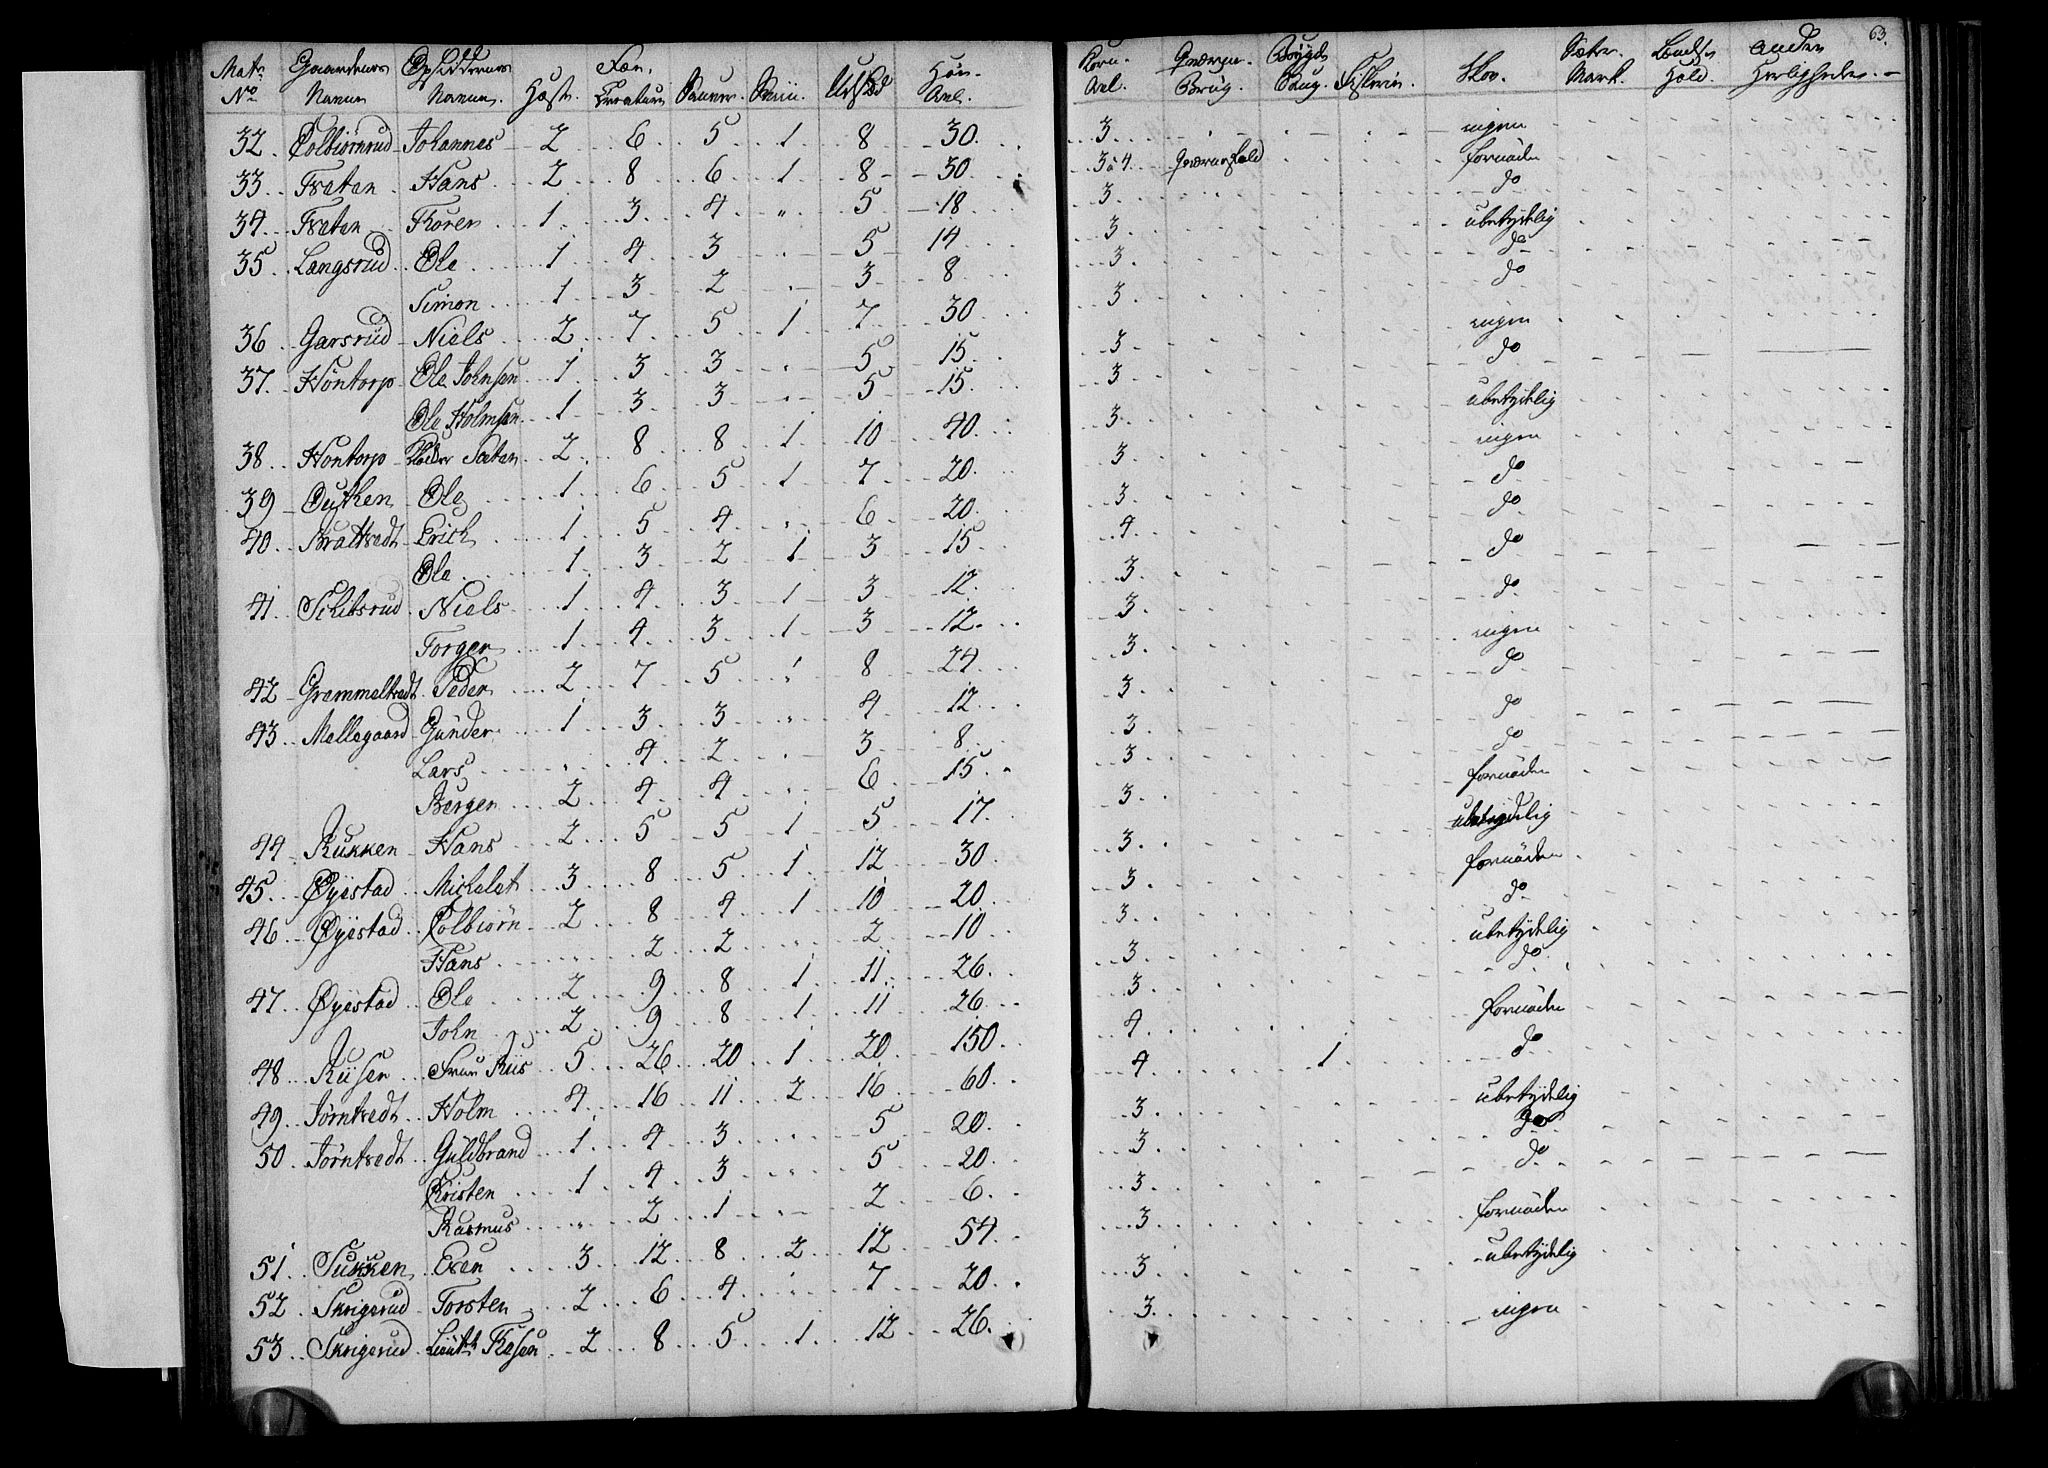 63.
Mat. No Gaardenes Navne Opsiddernes Navne. Hæste. Fæe, Creature Sauer. Sviin. Udsæd Høe-Avl. Korn-Avl. Qværne-Brug. Bøygde Brug. Fiskerie. Skov. Sæter-Mark. Hold. Andre Herligheder.
32. Colbiørnrud Johannes 2 6 5 1 8 30. 3. ingen
33. Fraten Hans 2 8 6 1 8 50. 3 à 4 fornøden
34. Fraten Thoren 1 3 4 " 5 18 3. do
35. Langsrud Ole 1 4 3 5 14 3. ubetydelig
Simon 1 3 2 3 8 3. do
36. Garsrud Niels 2 7 5 1 7 30 3. do
37. Hontorp Ole Johnsen 1 3 3 5 15. 3 ingen
Ole Holmsen 1 3 3 5 15. 3 do
38. Hontorp Peder 2 8 8 1 10 40. 3. ubetydelig
39 Ole 1 6 5 1 7 20. 3. ingen
40. Erich 1 5 4 6 20. 3. do
Ole 1 3 2 1 3 15 4. do
41 Niels 1 4 3 1 3 12. 3. do
Torger 1 4 3 1 3 12. 3. do
42 Peder 2 7 5 8 24 3. ingen
43 Mellegaard Gunder 1 3 3 4 12 3. do
Lars 4 2 3 8. 3. do
Børger 2 4 4 6 15. 3. do
44 Rukken Hans 2 5 5 1 5 17. 3. fornøden
45. Øyestad Michelet 3 8 5 1 12 30. 3. ubetydelig
46 Øyestad Colbiørn 2 8 4 1 10 20. 3. fornøden
Hans 2 2 2 10. 3. do
47 Øyestad Ole 2 9 8 1 11 26. 3. ubetydelig
John 2 9 8 1 11 26. 3. do
48 Riisen Frue Riis 5 26 20 1 20 150. 4. fornøden
49 Jørntvedt Holm 4 16 11 2 16 60. 4 1 do
50 Jørntvedt Guldbrand 1 4 3 5 20. 3. ubetydelig
Kristen 1 4 3 5 20. 3. do
Rasmus " 2 1 2 6. 3. do
51. Even 3 12 8 2 12 54. 3. fornøden
52 Skrigerud Torsten 2 6 4 7 20. 3. ubetydelig
53 Skrigerud 2 8 5 1 12 26. 3. ingen